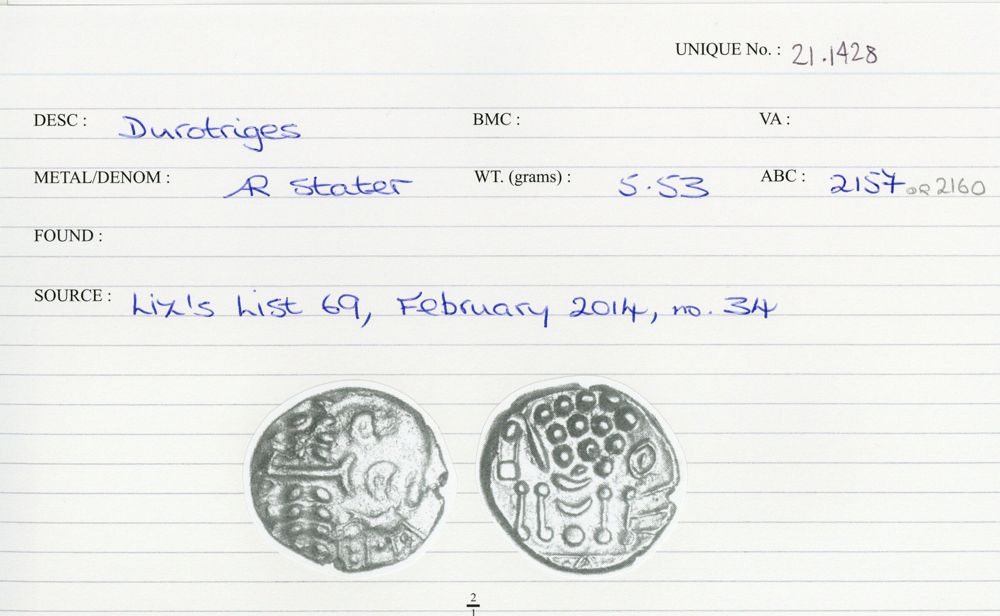 UNIQUE No. : 21.1428
DESC : Durotriges BMC : VA :
METAL/DENOM : AR Stater WT. (grams) : 5.53 ABC : 2157 OR 2160
FOUND :
SOURCE : Liz's List 69, February 2014, no. 34
2
1